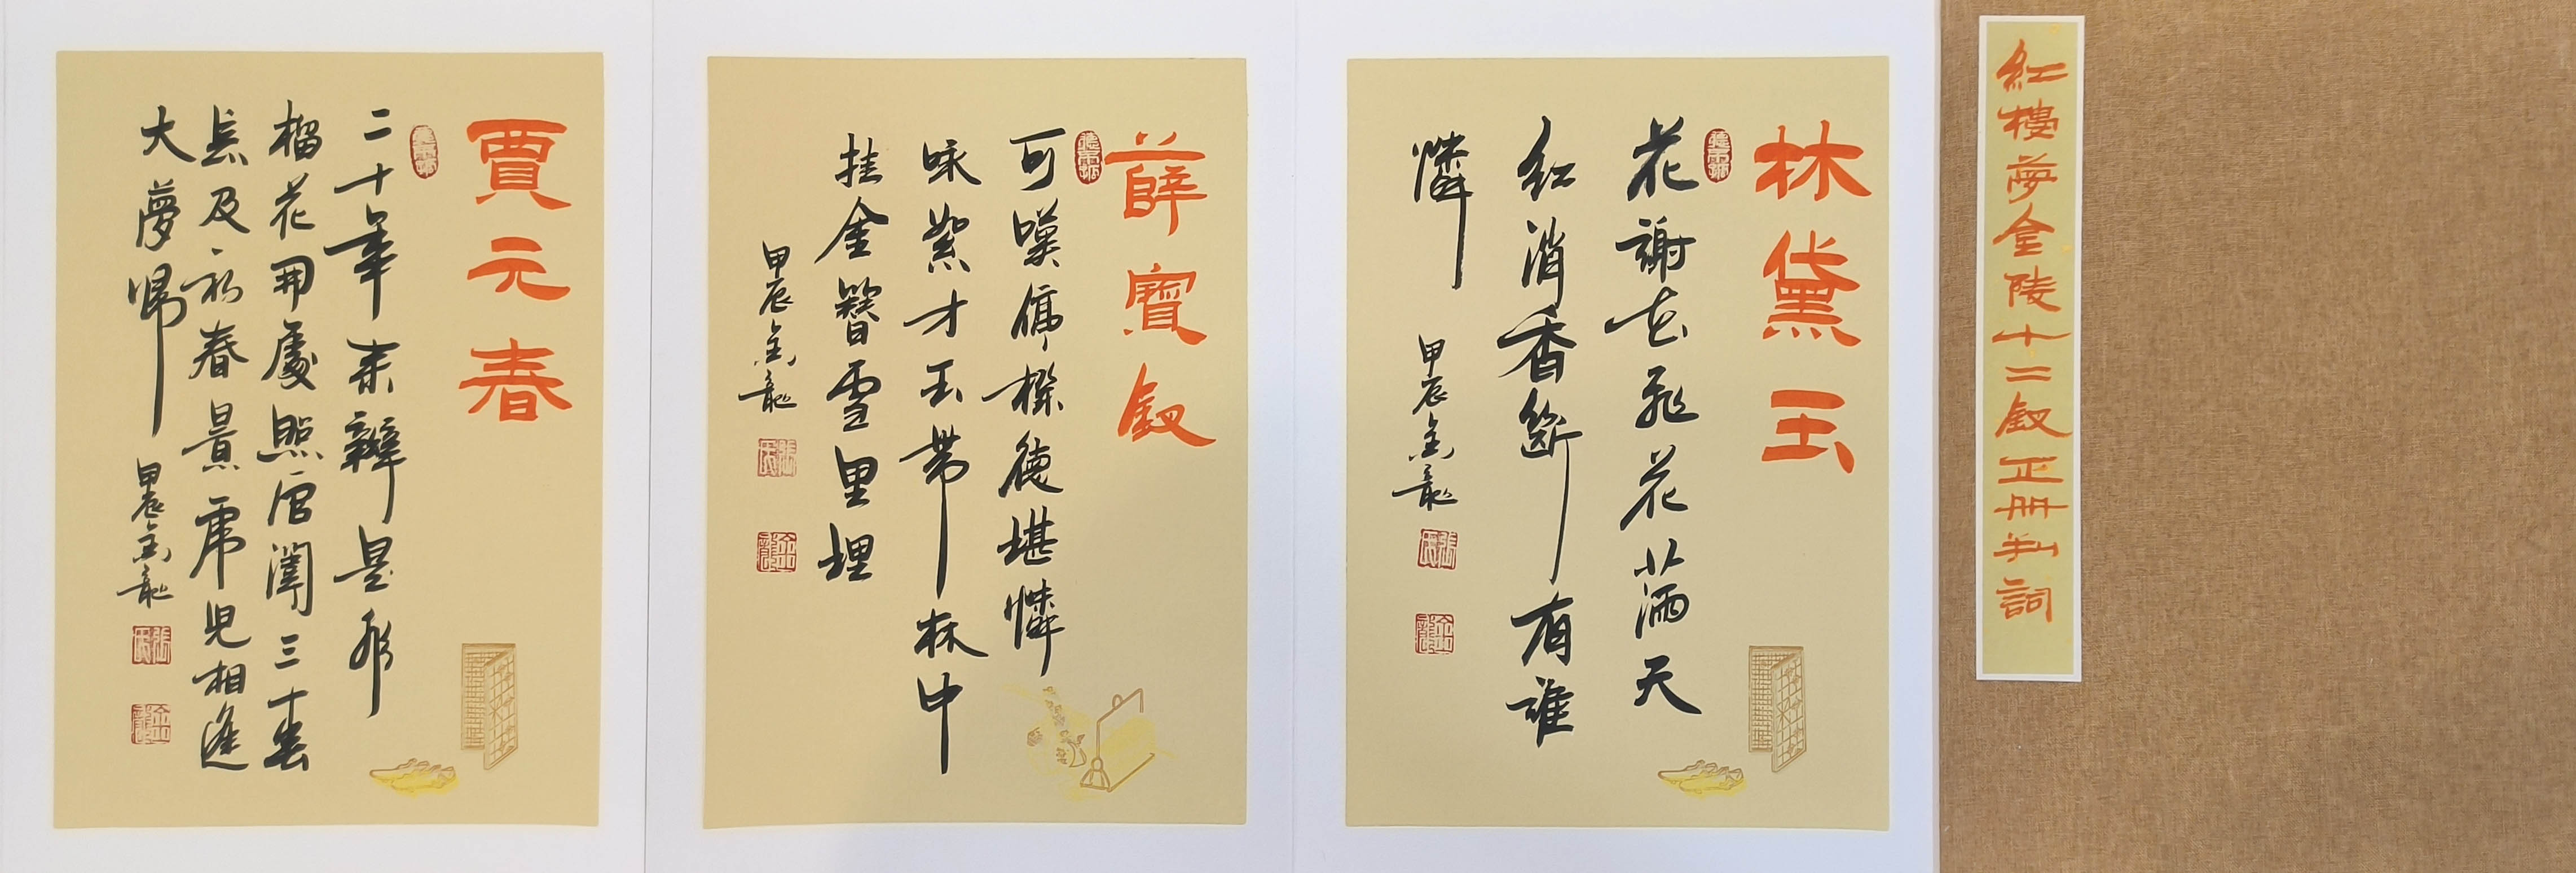 紅樓夢金陵十二釵正冊判詞
林黛玉
花謝花飛花满天
紅消香斷有誰
憐
甲辰金龍
張氏
金龍
薛寶釵
可嘆停機德堪憐
咏絮才玉帶林中
挂金簪雪里埋
甲辰金龍
張氏
金龍
賈元春
二十年来辨是非
榴花開處照宫闈三春
争及初春景虎兕相逢
大夢歸
甲辰金龍
張氏
金龍